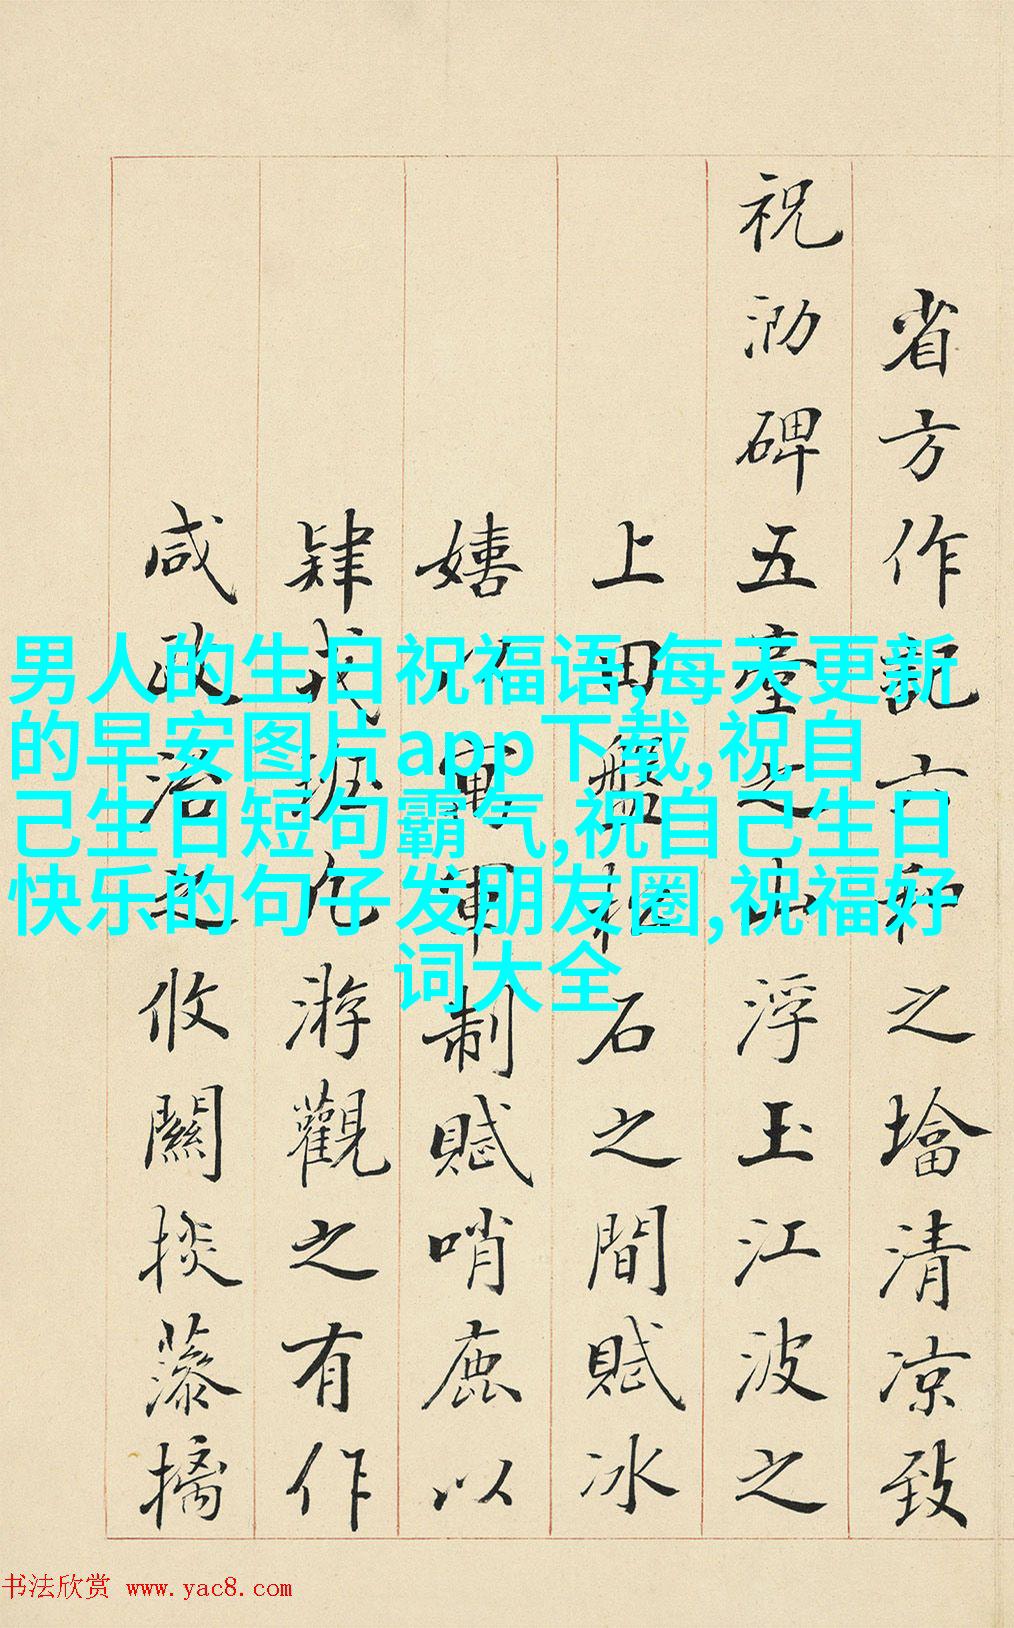 省方作記六和之墖清涼致
祝泐碑五臺之山浮玉江波之
上田盤石之間賦冰
嬉以寓軍制賦哨鹿以
肄戎凡游觀之有作
咸政治之攸關掞藻摛
男人的生日祝福语,每天更新
的早安图片app下载,祝自
己生日短句霸气,祝自己生日
快乐的句子发朋友圈,祝福好
词大全
书法欣赏 www.yac8.com